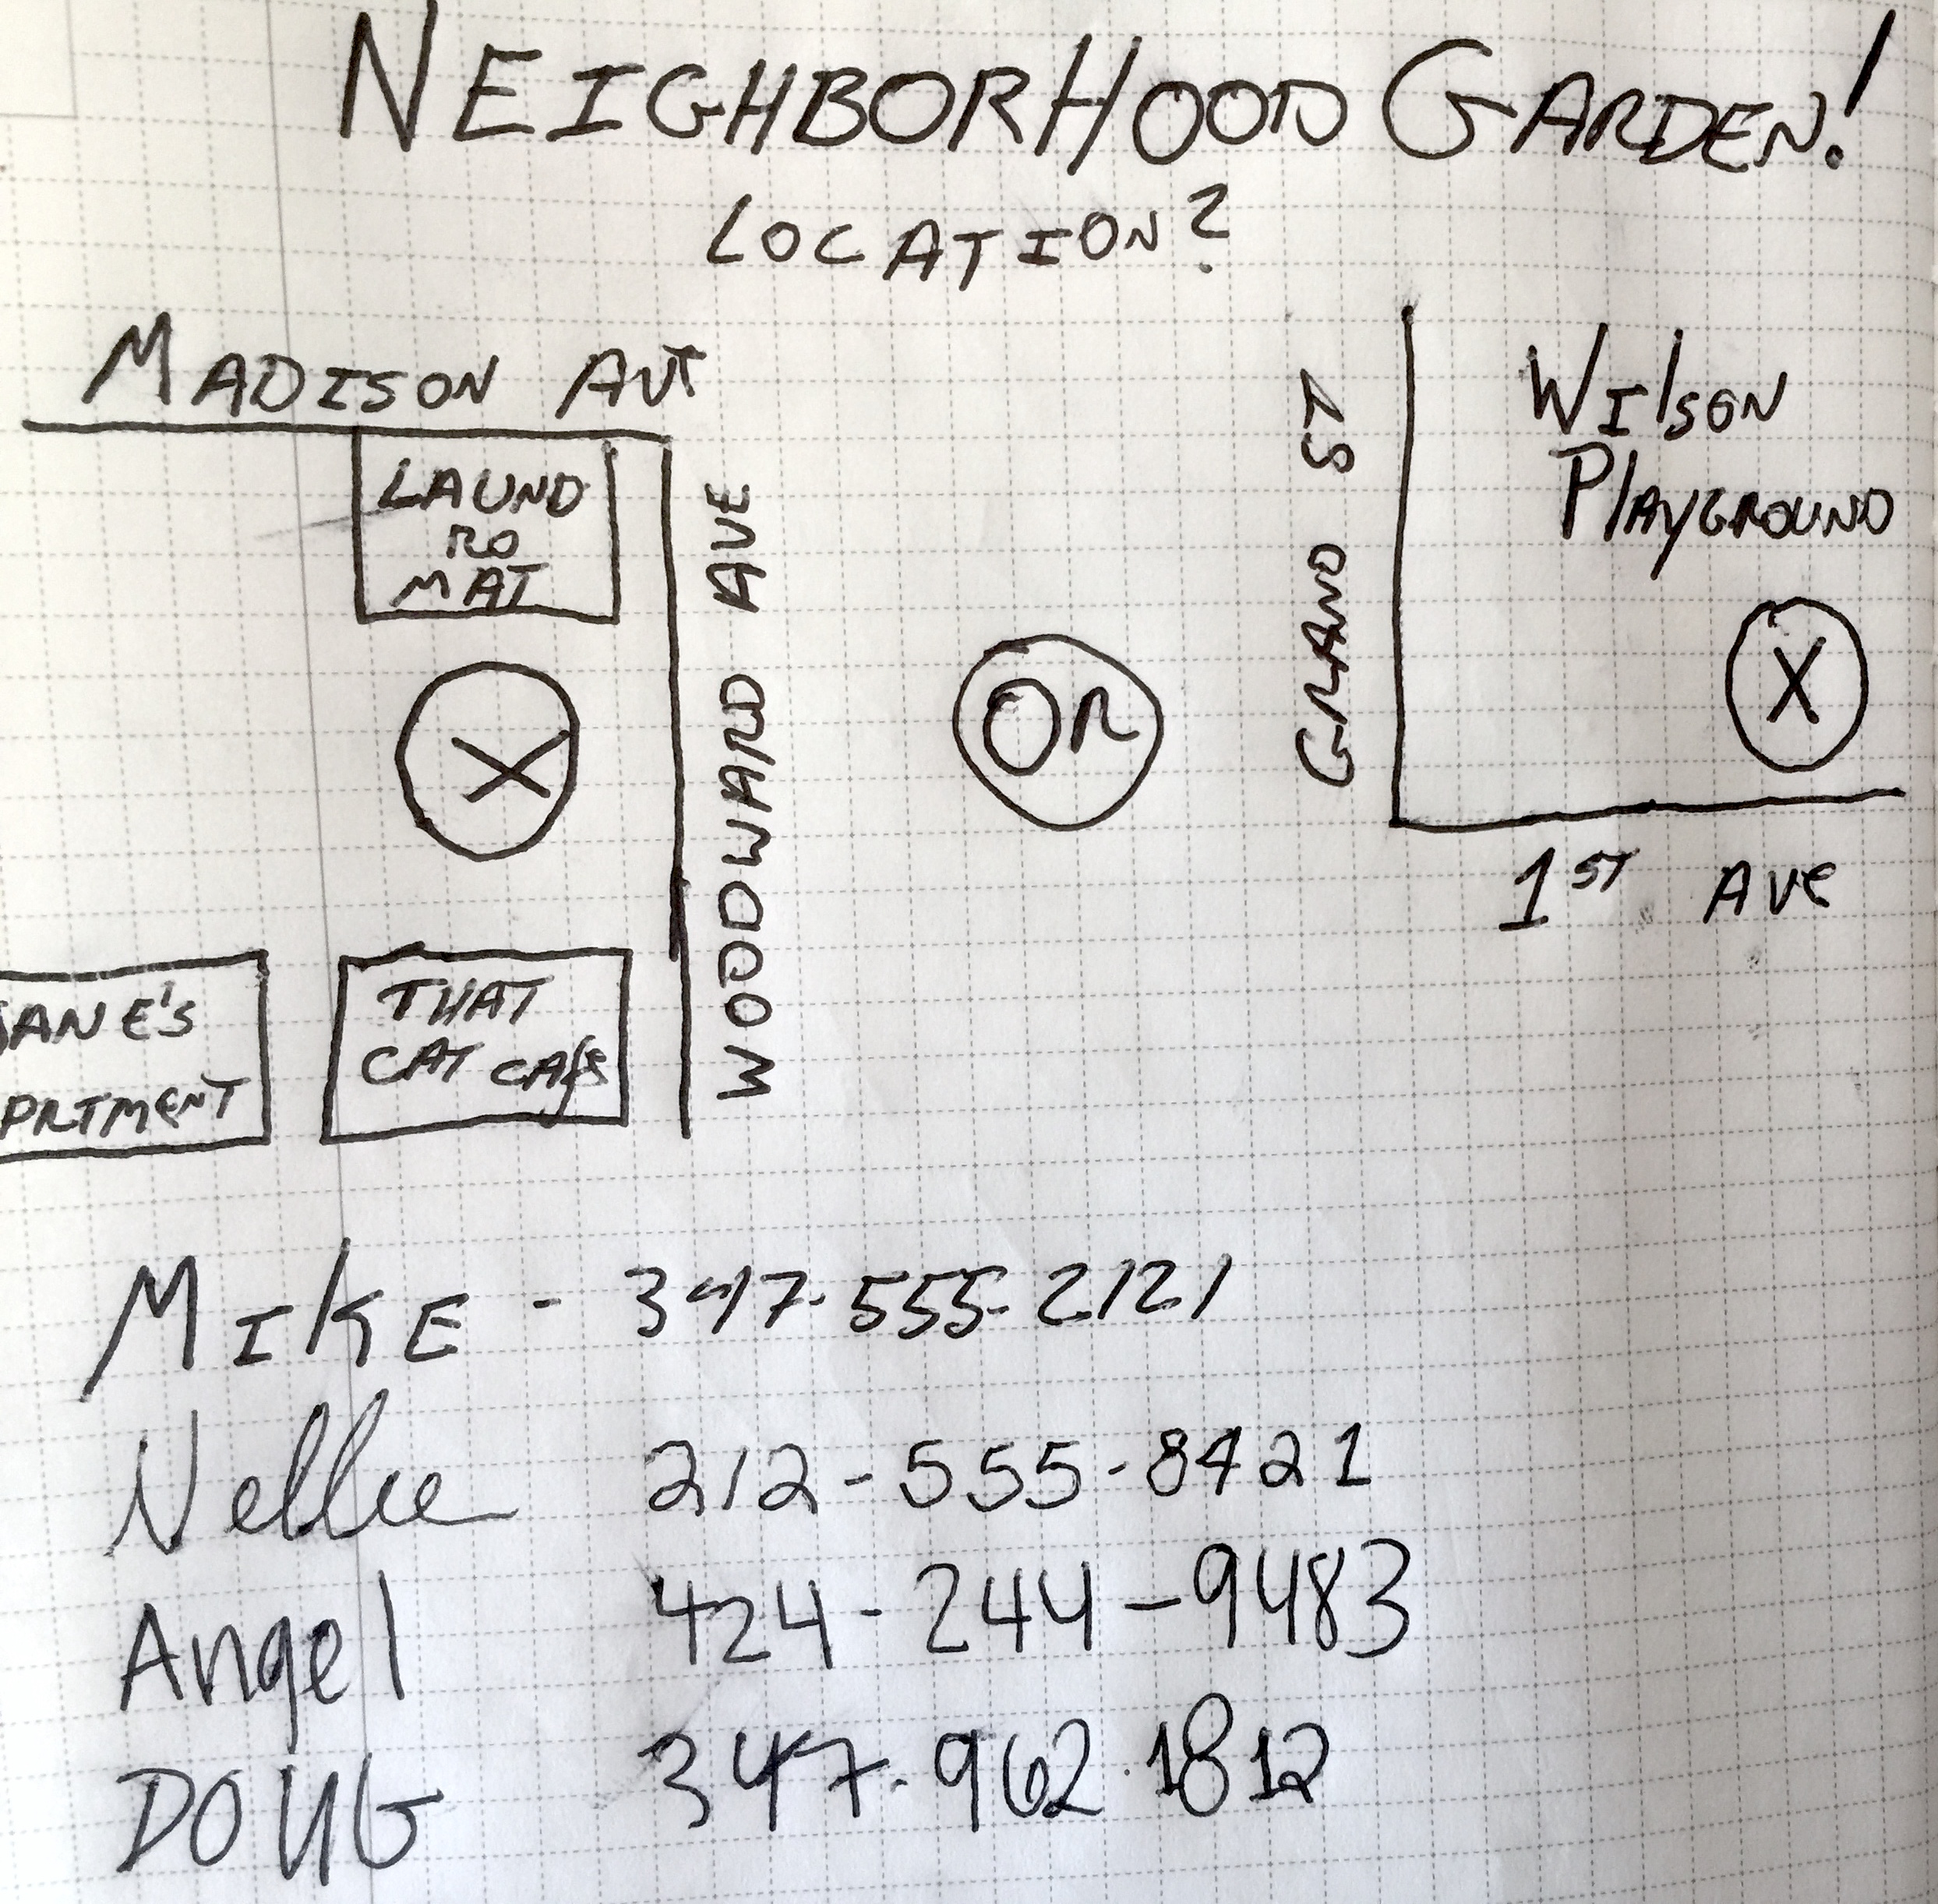 NEIGHBORHOOD GARDEN!
LOCATION?
MADISON AVE
LAUND
RO
MAT
WOODWARD AVE
ANE'S
PRTMENT
THAT
CAT CAFE
OR
GRAND ST
WILSON
PLAYGROUND
X
X
1ST AVE
MIKE - 347-555-2121
Nellie 212-555-8421
Angel 424-244-9483
DOUG 347-962-1812